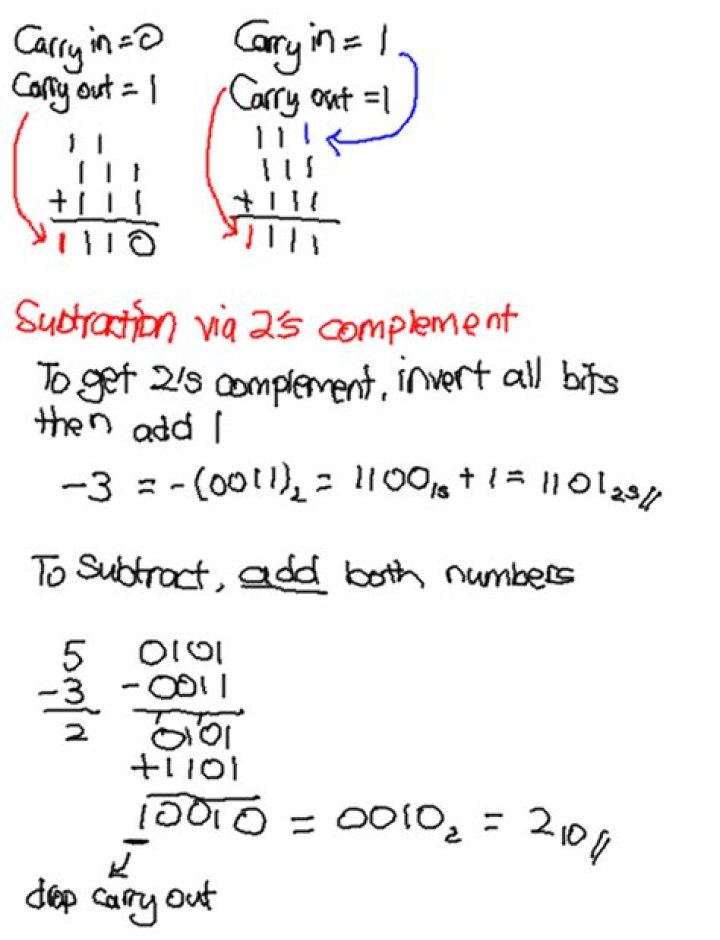 Carry in = 0
Carry out = 1
1 1
1 1 1
+ 1 1 1
1 1 1 0
Carry in = 1
Carry out = 1
1 1 1
1 1 1
+ 1 1 1
1 1 1 1
Subtraction via 2's complement
To get 2's complement, invert all bits
then add 1
-3 = -(0011)₂ = 1100₁ₛ + 1 = 1101₂ₛ //
To Subtract, add both numbers
5 0101
-3 -0011
2 0101
+1101
10010 = 0010₂ = 2₁₀ //
drop carry out